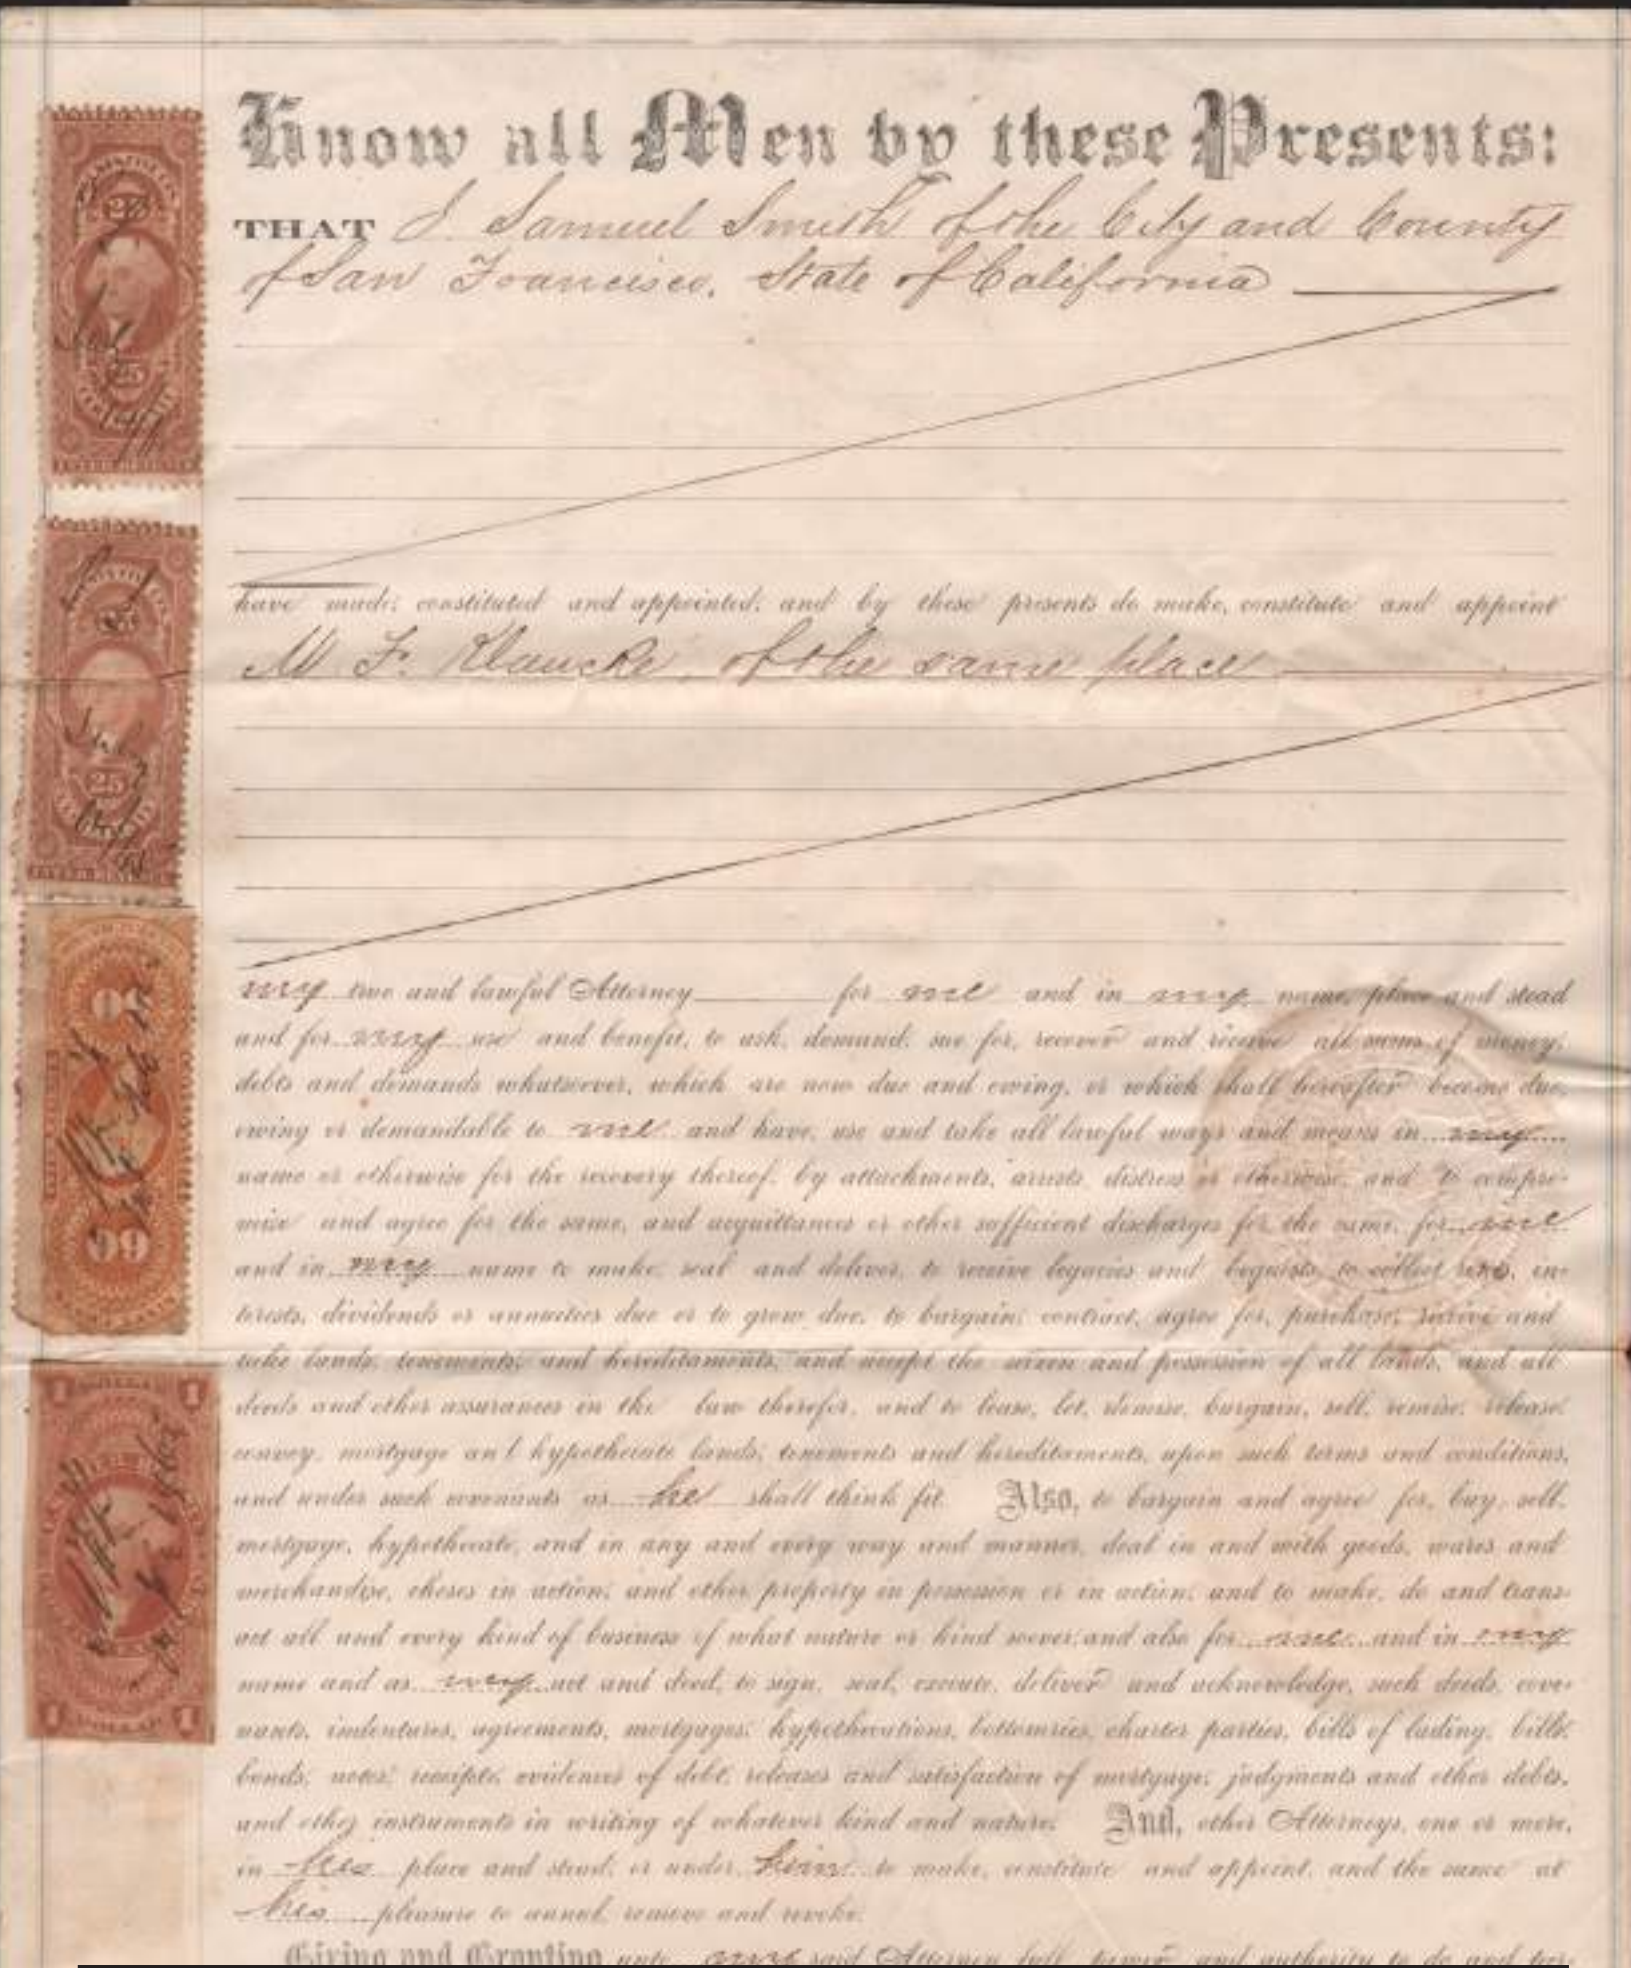 Know all Men by these Presents:
THAT I Samuel Smith of the City and County
of San Francisco, State of California
have made, constituted and appointed, and by these presents do make, constitute and appoint
M F. Klaucke, of the same place
my true and lawful Attorney for me and in my name, place and stead
and for my use and benefit, to ask, demand, sue for, recover and receive all sums of money,
debts and demands whatsoever, which are now due and owing, or which shall hereafter become due,
owing or demandable to me and have, use and take all lawful ways and means in my
name or otherwise for the recovery thereof, by attachments, arrests, distress or otherwise, and to compro-
mise and agree for the same, and acquittances or other sufficient discharges for the same, for me
and in my name to make, seal and deliver, to receive legacies and bequests, to collect rents, in-
terests, dividends or annuities due or to grow due, to bargain, contract, agree for, purchase, receive and
take lands, tenements, and hereditaments, and accept the seizen and possession of all lands, and all
deeds and other assurances in the law therefor, and to lease, let, demise, bargain, sell, remise, release,
convey, mortgage an l hypothecate lands, tenements and hereditaments, upon such terms and conditions,
and under such covenants as he shall think fit. Also, to bargain and agree for, buy, sell,
mortgage, hypothecate, and in any and every way and manner, deal in and with goods, wares and
merchandize, choses in action, and other property in possession or in action, and to make, do and trans-
act all and every kind of business of what nature or kind soever; and also for me and in my
name and as my act and deed, to sign, seal, execute, deliver and acknowledge, such deeds, cove-
nants, indentures, agreements, mortgages, hypothecations, bottomries, charter parties, bills of lading, bills,
bonds, notes, receipts, evidences of debt, releases and satisfaction of mortgage, judgments and other debts,
and other instruments in writing of whatever kind and nature. And, other Attorneys, one or more,
in his place and stead, or under him to make, constitute and appoint, and the same at
his pleasure to annul, remove and revoke.
Giving and Granting unto my said Attorney full power and authority to do and per-
25
25
25
1 1
1 DOLLAR 1